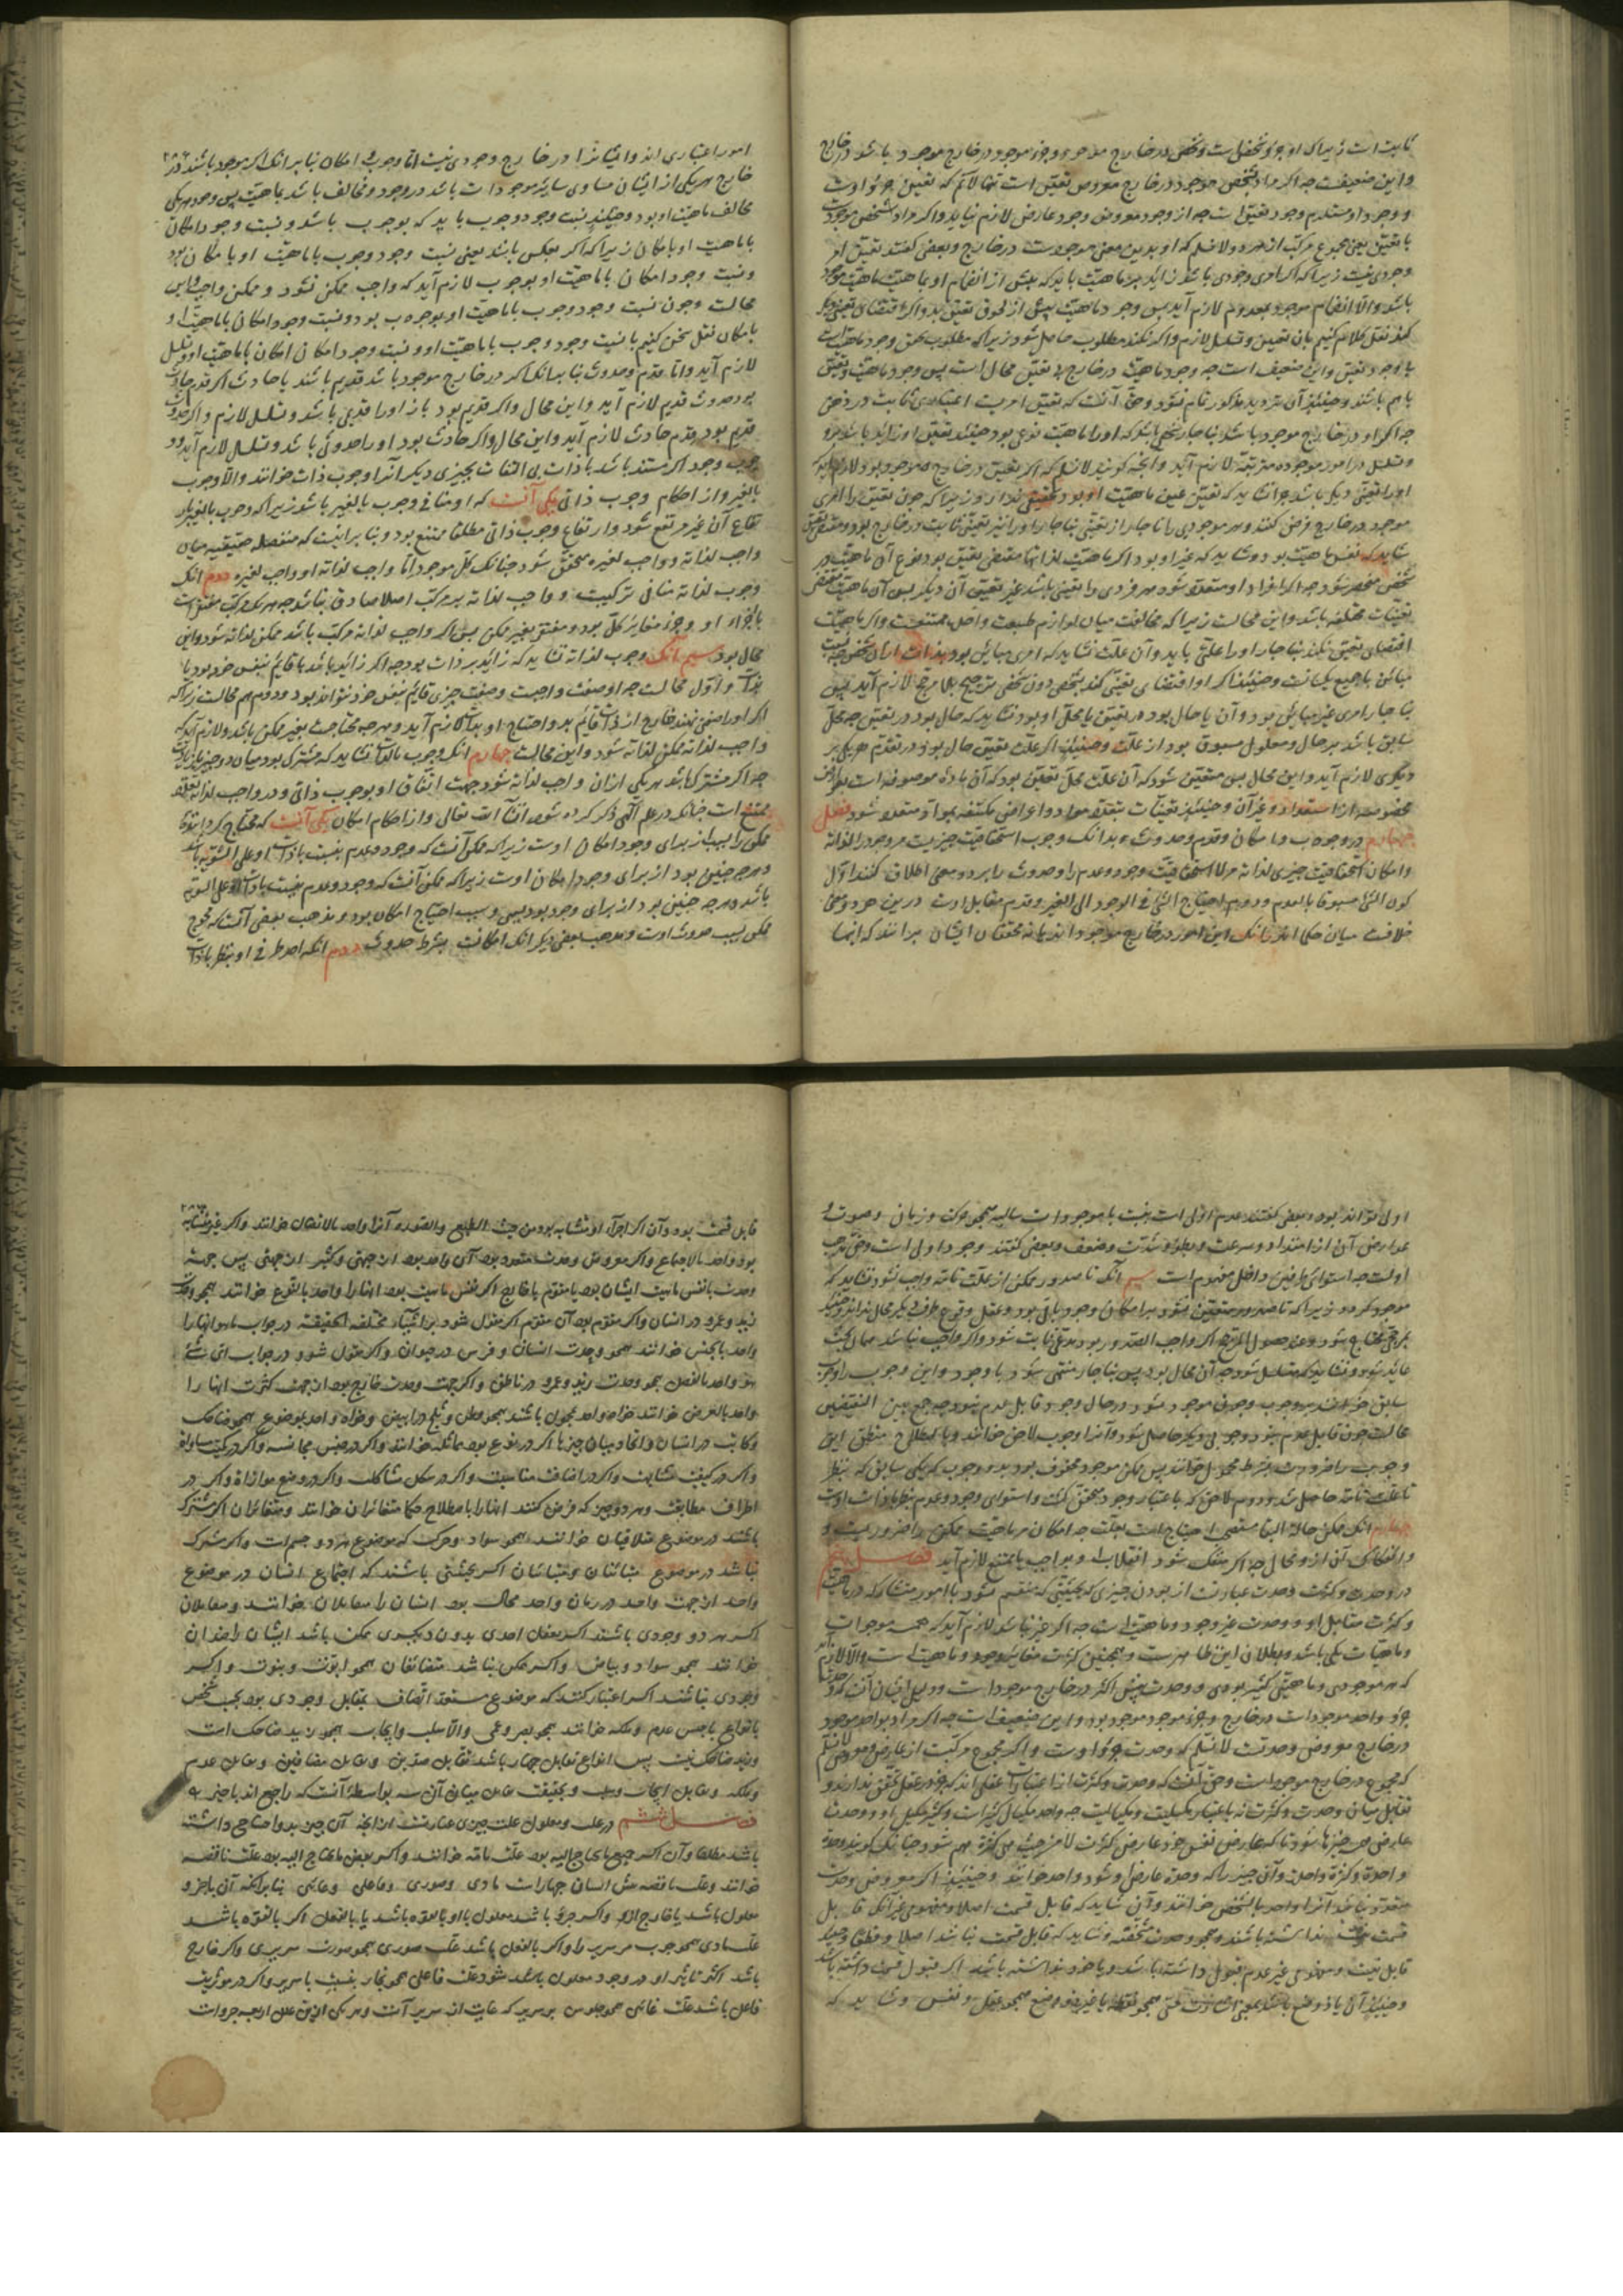 ثابت است زیرا که او جزو شخص است و شخص در خارج موجود و جزو موجود در خارج موجود باشد در خارج
و این ضعیفست چه اگر مراد بشخص موجود در خارج معروض تعین است تنها لانم که تعین جزو اوست
و وجود او مستلزم وجود تعین است چه از وجود معروض وجود عارض لازم نیاید و اگر مراد شخص موجودست
با تعین یعنی مجموع مرکب از هر دو لانسلم که او بدین معنی موجودست در خارج و بعضی گفتند تعین امر
وجودی نیست زیرا که اگر امری وجودی باشد زاید بر ماهیت باید که پیش از انضمام او بماهیت ماهیت موجود
باشد و الا انضمام موجود بمعدوم لازم آید پس وجود ماهیت پیش از لحوق تعین بدو اگر اقتضای تعینی دیگر
کند نقل کلام کنیم بان تعین و تسلسل لازم و اگر نکند مطلوب حاصل شود زیرا که مطلوب تحقق وجود ماهیتست
با وجود تعین و این ضعیف است چه وجود ماهیت در خارج بی تعین محال است پس وجود ماهیت و تعین
با هم باشند و حینئذ آن تردید مذکور تمام نشود و حق آنست که تعین امریست اعتباری ثابت در ذهن
چه اگر او در خارج موجود باشد ناچار شخصی باشد که او را ماهیت نوعی بود حینئذ تعین او زاید باشد برو
و تسلسل در امور موجوده مترتبه لازم آید و آنچه گویند لانسلم که اگر تعین در خارج موجود بود لازم آید که
او را تعینی دیگر باشد چرا نشاید که تعین عین ماهیت او بود تحقیقی ندارد زیرا که چون تعین را امری
موجود در خارج فرض کنند و هر موجودی را ناچار از تعینی نباچار او را نیز تعینی ثابت در خارج بود و مقتضی تعین
شاید که نفس ماهیت بود و شاید که غیر او بود اگر ماهیت لذاتها مقتضی تعین بود نوع آن ماهیت در
شخص منحصر شود چه اگر افراد او متعدد شود هر فردی را تعینی باشد غیر تعین آن دیگر پس آن ماهیت مقتضی
تعینات مختلفه باشد و این محالست زیرا که مخالفت میان لوازم طبیعت واحده ممتنعست و اگر ماهیت
اقتضای تعین نکند ناچار او را علتی باید و آن علت نشاید که امری مباین بود ازان شخص چه نسبت
مباین با جمیع یکسانست و حینئذ اگر او اقتضای تعینی کند بشخصی دون شخصی ترجیح بلا مرجح لازم آید پس
ناچار امری غیر مباین بود و آن یا حال بود در تعین یا محل او بود نشاید که حال بود در تعین چه محل
سابق باشد بر حال و معلول مسبوق بود از علت و حینئذ اگر علت تعین حال بود در تقدم هر یکی بر
دیگری لازم آید و این محال پس متعین شود که آن علت محل تعین بود که آن ماده موصوفه است بعوارض
مخصوصه از استعداد و غیر آن و حینئذ تعینات بتعدد مواد و اعراض مکتنفه بمواد متعدد شود فصل
چهارم در وجوب و امکان و قدم و حدوث بدانک وجوب استحقاقیت چیزیست مر وجود را لذاته
و امکان لا استحقاقیت چیزی لذاته مر لا استحقاقیت وجود و عدم را و حدوث را بر دو معنی اطلاق کنند اول
کون الشئ مسبوقا بالعدم و دوم احتیاج الشئ فی الوجود الی الغیر و قدم مقابل اوست درین هر دو معنی
خلافست میان حکما اند بانک این امور در خارج موجود اند یا نه محققان ایشان برانند که اینها
امور اعتباری اند و ایشانرا در خارج وجودی نیست اما وجوب و امکان بنا بر انک اگر موجود باشند در
خارج هر یکی از ایشان مساوی سایر موجودات باشد در وجود و مخالف باشد بماهیت پس وجود هر یکی
مخالف ماهیت او بود و حینئذ نسبت وجود وجوب باید که بوجوب باشد و نسبت وجود امکان
با ماهیت او بامکان زیرا که اگر بعکس باشد یعنی نسبت وجود وجوب با ماهیت او بامکان بود
و نسبت وجود امکان با ماهیت او بوجوب لازم آید که واجب ممکن شود و ممکن واجب و این
محالست و چون نسبت وجود وجوب با ماهیت او بوجوب بود و نسبت وجود امکان با ماهیت او
بامکان نقل سخن کنیم با نسبت وجود وجوب با ماهیت او و نسبت وجود امکان امکان با ماهیت او و تسلسل
لازم آید و اما قدم و حدوث بنا بر انک اگر در خارج موجود باشد قدیم باشند یا حادث اگر قدم حادث
بود حدوث قدیم لازم آید و این محال و اگر قدیم بود باز او را قدمی باشد و تسلسل لازم و اگر حدوث
قدیم بود قدم حادث لازم آید و این محال و اگر حادث بود او را حدوثی باشد و تسلسل لازم آید و
وجوب وجود اگر مستند باشد با ذات بی التفات بچیزی دیگر آنرا وجوب ذات خوانند و الا وجوب
بالغیر و از احکام وجوب ذاتی یکی آنست که او منافی وجوب بالغیر باشد زیرا که وجوب بالغیر بار
تفاع آن غیر مرتفع شود و ارتفاع وجوب ذاتی مطلقا ممتنع بود و بنا برینست که منفصله حقیقیه میان
واجب لذاته و واجب لغیره متحقق شود چنانک کل موجود اما واجب لذاته او واجب لغیره دوم انک
وجوب لذاته منافی ترکیبست و واجب لذاته بر مرکب اصلا صادق نباشد چه هر یک مرکب مفتقرست
باجزاء او و جزو مغایر کل بود و مفتقر بغیر ممکن پس اگر واجب لذاته مرکب باشد ممکن لذاته شود و این
محال بود سیم آنک وجوب لذاته نشاید که زائد بر ذات بود چه اگر زائد باشد یا قائم بنفس خود بود یا
بذات و اول محالست چه او صفت واجبست و صفت چیزی قائم بنفس خود نتواند بود و دوم هم محالست زیرا که
اگر او را صفتی نهند خارج از ذات قائم بدو احتیاج او بذات لازم آید و هر چه محتاجست بغیر ممکن باشد و لازم آید که
واجب لذاته ممکن لذاته شود و این محالست چهارم انک وجوب بالذات نشاید که مشترک بود میان دو چیز بالذات
چه اگر مشترک باشد هر یکی ازان واجب لذاته شود جهت اتفاق او بوجوب ذاتی و در واجب لذاته تعدد
ممتنع است چنانک در علم الهی ذکر کرده شود انشا الله تعالی و از احکام امکان یکی آنست که محتاج گرداننده
ممکن را بسبب از برای وجود امکان اوست زیرا که ممکن آنست که وجود و عدم بنسبت با ذات او علی السویه باشد
و هر چه چنین بود از برای وجود امکان اوست زیرا که ممکن آنست که وجود و عدم بنسبت با ذات او علی السویه
باشد و هر چه چنین بود از برای وجود بود بسببی و سبب احتیاج امکان بود و مذهب بعضی آنست که محوج
ممکن بسبب حدوث اوست و مذهب بعضی دیگر انک امکانست بشرط حدوث دوم انک احد طرفی او بنظر با ذات
اولی نتواند بود و بعضی گفتند عدم اولی است بنسبت با موجودات سیاله همچو حرکت و زمان و صوت و
عوارض آن از امتداد و سرعت و بطؤ و شدت و ضعف و بعضی گفتند وجود اولی است و حق مذهب
اولست چه استوای طرفین داخل مفهوم است سیم آنک تا صدور ممکن از علت تامه واجب نشود نشاید که
موجود گردد زیرا که تا صدور متعین نشود بر امکان وجود باقی بود و عقل وقوع طرف دیگر محال نداند و حینئذ
بمرجح محتاج شود و عند حصول المرجح اگر واجب الصدور بود مدعی ثابت شود و اگر واجب نباشد همان بحث
عائد شود و نشاید که متسلسل شود چه آن محال بود پس ناچار منتهی شود با وجود و این وجوب را وجوب
سابق خوانند و وجوب و چون موجود شود در حال وجود قابل عدم نبود چه جمع بین النقیضین
محالست چون قابل عدم نبود وجوبی دیگر حاصل شود و آنرا وجوب لاحق خوانند و باصطلاح منطق این
وجوب را ضرورت بشرط محمول خوانند پس ممکن موجود محفوف بود بدو وجوب که یکی سابق که بنظر
با علت تامه حاصل شد و دوم لاحق که باعتبار وجود متحقق گشت و استوای وجود و عدم بنظر با ذات اوست
چهارم انک ممکن حالة البقا مستغنی احتیاج است بعلت چه امکان مر ماهیت ممکن را ضروریست و
و انفکاک آن ازو محال چه اگر منفک شود انقلاب او بواجب یا بممتنع لازم آید فصل پنجم
در وحدت و کثرت وحدت عبارتست از بودن چیزی که بحیثیتی که منقسم نشود با امور متشارکه در ماهیت
و کثرت مقابل او و وحدت غیر وجود و ماهیت است چه اگر غیر نباشد لازم آید که همه موجودات
و ماهیات یکی باشد و بطلان این ظاهرست و همچنین کثرت مغایر وجود و ماهیت است و الا لازم آید
که هر موجودی و ماهیتی کثیر بودی و وحدت پیش اکثر در خارج موجود است و دلیل ایشان آنست که وحدت
جزو واحد موجود است در خارج و جزو موجود موجود بود و این ضعیف است چه اگر مراد بواحد موجود
در خارج معروض وحدتست لانسلم که وحدت جزو اوست و اگر مجموع مرکبست از عارض و معروض لانسلم
که مجموع در خارج موجود است و حق آنست که وحدت و کثرت از اعتبارات عقلی اند که جز در عقل تحقق ندارند و
تقابل میان وحدت و کثرت نه باعتبار مکیلیت و مکیالیت چه واحد مکیال کثیر است و کثیر مکیل باو و وحدت
عارض همه چیزها شود تا که عارض نفس خود عارض کثرت لا من حیث هی کثرة هم شود چنانک گویند وحدة
واحدة و کثرة واحدة و آن چیز را که وحدة عارض او شود واحد خوانند و حینئذ اگر معروض وحدت
متعدد نباشد آنرا واحد بالشخص خوانند و آن شاید که قابل قسمت اصلا و مفهومی غیر آنک قابل
قسمت نیست نداشته باشد همچو وحدت مشخصه و شاید که قابل قسمت نباشد اصلا و مطلقا وجهد
قابل نیست و مفهومی غیر عدم قبول داشته باشد و یا خود نداشته باشد اگر قبول قسمت داشته باشد
و حینئذ آن یا ذو وضع باشد یعنی اشارت حسی همچو نقطه یا غیر ذو وضع همچو عقل و نفس و شاید که
قابل قسمت بود و آن اگر اجزاء او متشابه بود من حیث الطبع و الصورة آنرا واحد بالاتصال خوانند و اگر غیر متشابه
بود واحد بالاجتماع و اگر معروض وحدت متعدد بود آن واحد بود از جهتی و کثیر از جهتی پس جهت
وحدت یا نفس ماهیت ایشان بود یا مقوم یا خارج اگر نفس ماهیت بود انها را واحد بالنوع خوانند همچو وحدت
زید و عمرو در انسان و اگر مقوم بود آن مقوم اگر مقول شود بر اشیاء مختلفه الحقیقه در جواب ما هو انها را
واحد بالجنس خوانند همچو وحدت انسان و فرس در حیوان و اگر مقول شود در جواب ای شئ
هو واحد بالفصل همچو وحدت زید و عمرو در ناطق و اگر جهت وحدت خارج بود از جهت کثرت انها را
واحد بالعرض خوانند خواه واحد بمحمول باشند همچو قطن و ثلج در ابیض و خواه واحد بموضوع همچو ضاحک
و کاتب در انسان و اتحاد میان چیزها اگر در نوع بود مماثله خوانند و اگر در جنس مجانسه و اگر در کمیت مساواة
و اگر در کیفیت مشابهت و اگر در اضافت مناسبت و اگر در شکل مشاکلت و اگر در وضع موازاة و اگر در
اطراف مطابقت و هر دو چیز که فرض کنند انها را باصطلاح حکما متغایران خوانند و متغایران اگر مشترک
باشند در موضوع متلاقیان خوانند همچو سواد و حرکت که موضوع هر دو جسم است و اگر مشترک
نباشد در موضوع متباینان و متباینان اگر بحیثیتی باشند که اجتماع ایشان در موضوع
واحد از جهت واحد در زمان واحد محال بود ایشان را متقابلان خوانند و متقابلان
اگر هر دو وجودی باشند اگر تعقل احدی بدون دیگری ممکن باشد ایشان را ضدان
خوانند همچو سواد و بیاض و اگر ممکن نباشد متضایفان همچو ابوت و بنوت و اگر
وجودی نباشند اگر اعتبار کنند که موضوع مستعد اتصاف بمقابل وجودی بود بحسب شخص
یا نوع یا جنس عدم و ملکه خوانند همچو بصر و عمی و الا سلب و ایجاب همچو زید ضاحک است
و زید ضاحک نیست پس انواع تقابل چهار باشد تقابل ضدین و تقابل متضایفین و تقابل عدم
و ملکه و تقابل ایجاب و سلب و بحقیقت تقابل میان آن سه بواسطه آنست که راجع اند با چیز
فصل ششم در علت و معلول علت چیزی عبارتست از انچه آن چیز بدو احتیاج داشته
باشد مطلقا و آن اگر جمیع ما یحتاج الیه بود علت تامه خوانند و اگر بعض ما یحتاج الیه بود علت ناقصه
خوانند و علت ناقصه مثل انسان چهار است مادی و صوری و فاعلی و غایی بنا برانکه آن یا جزو
معلول باشد یا خارج ازو و اگر جزو باشد معلول با او بالقوه باشد یا بالفعل اگر بالقوه باشد
علت مادی همچو چوب مر سریر را و اگر بالفعل باشد علت صوری همچو صورت سریری و اگر خارج
باشد اگر تاثیر او در وجود معلول باشد شود علت فاعلی همچو نجار بنسبت با سریر و اگر در موثریت
فاعل باشد علت غائی همچو جلوس بر سریر که غایت ان سریر آنست و هر یکی ازین علل اربعه جز وات